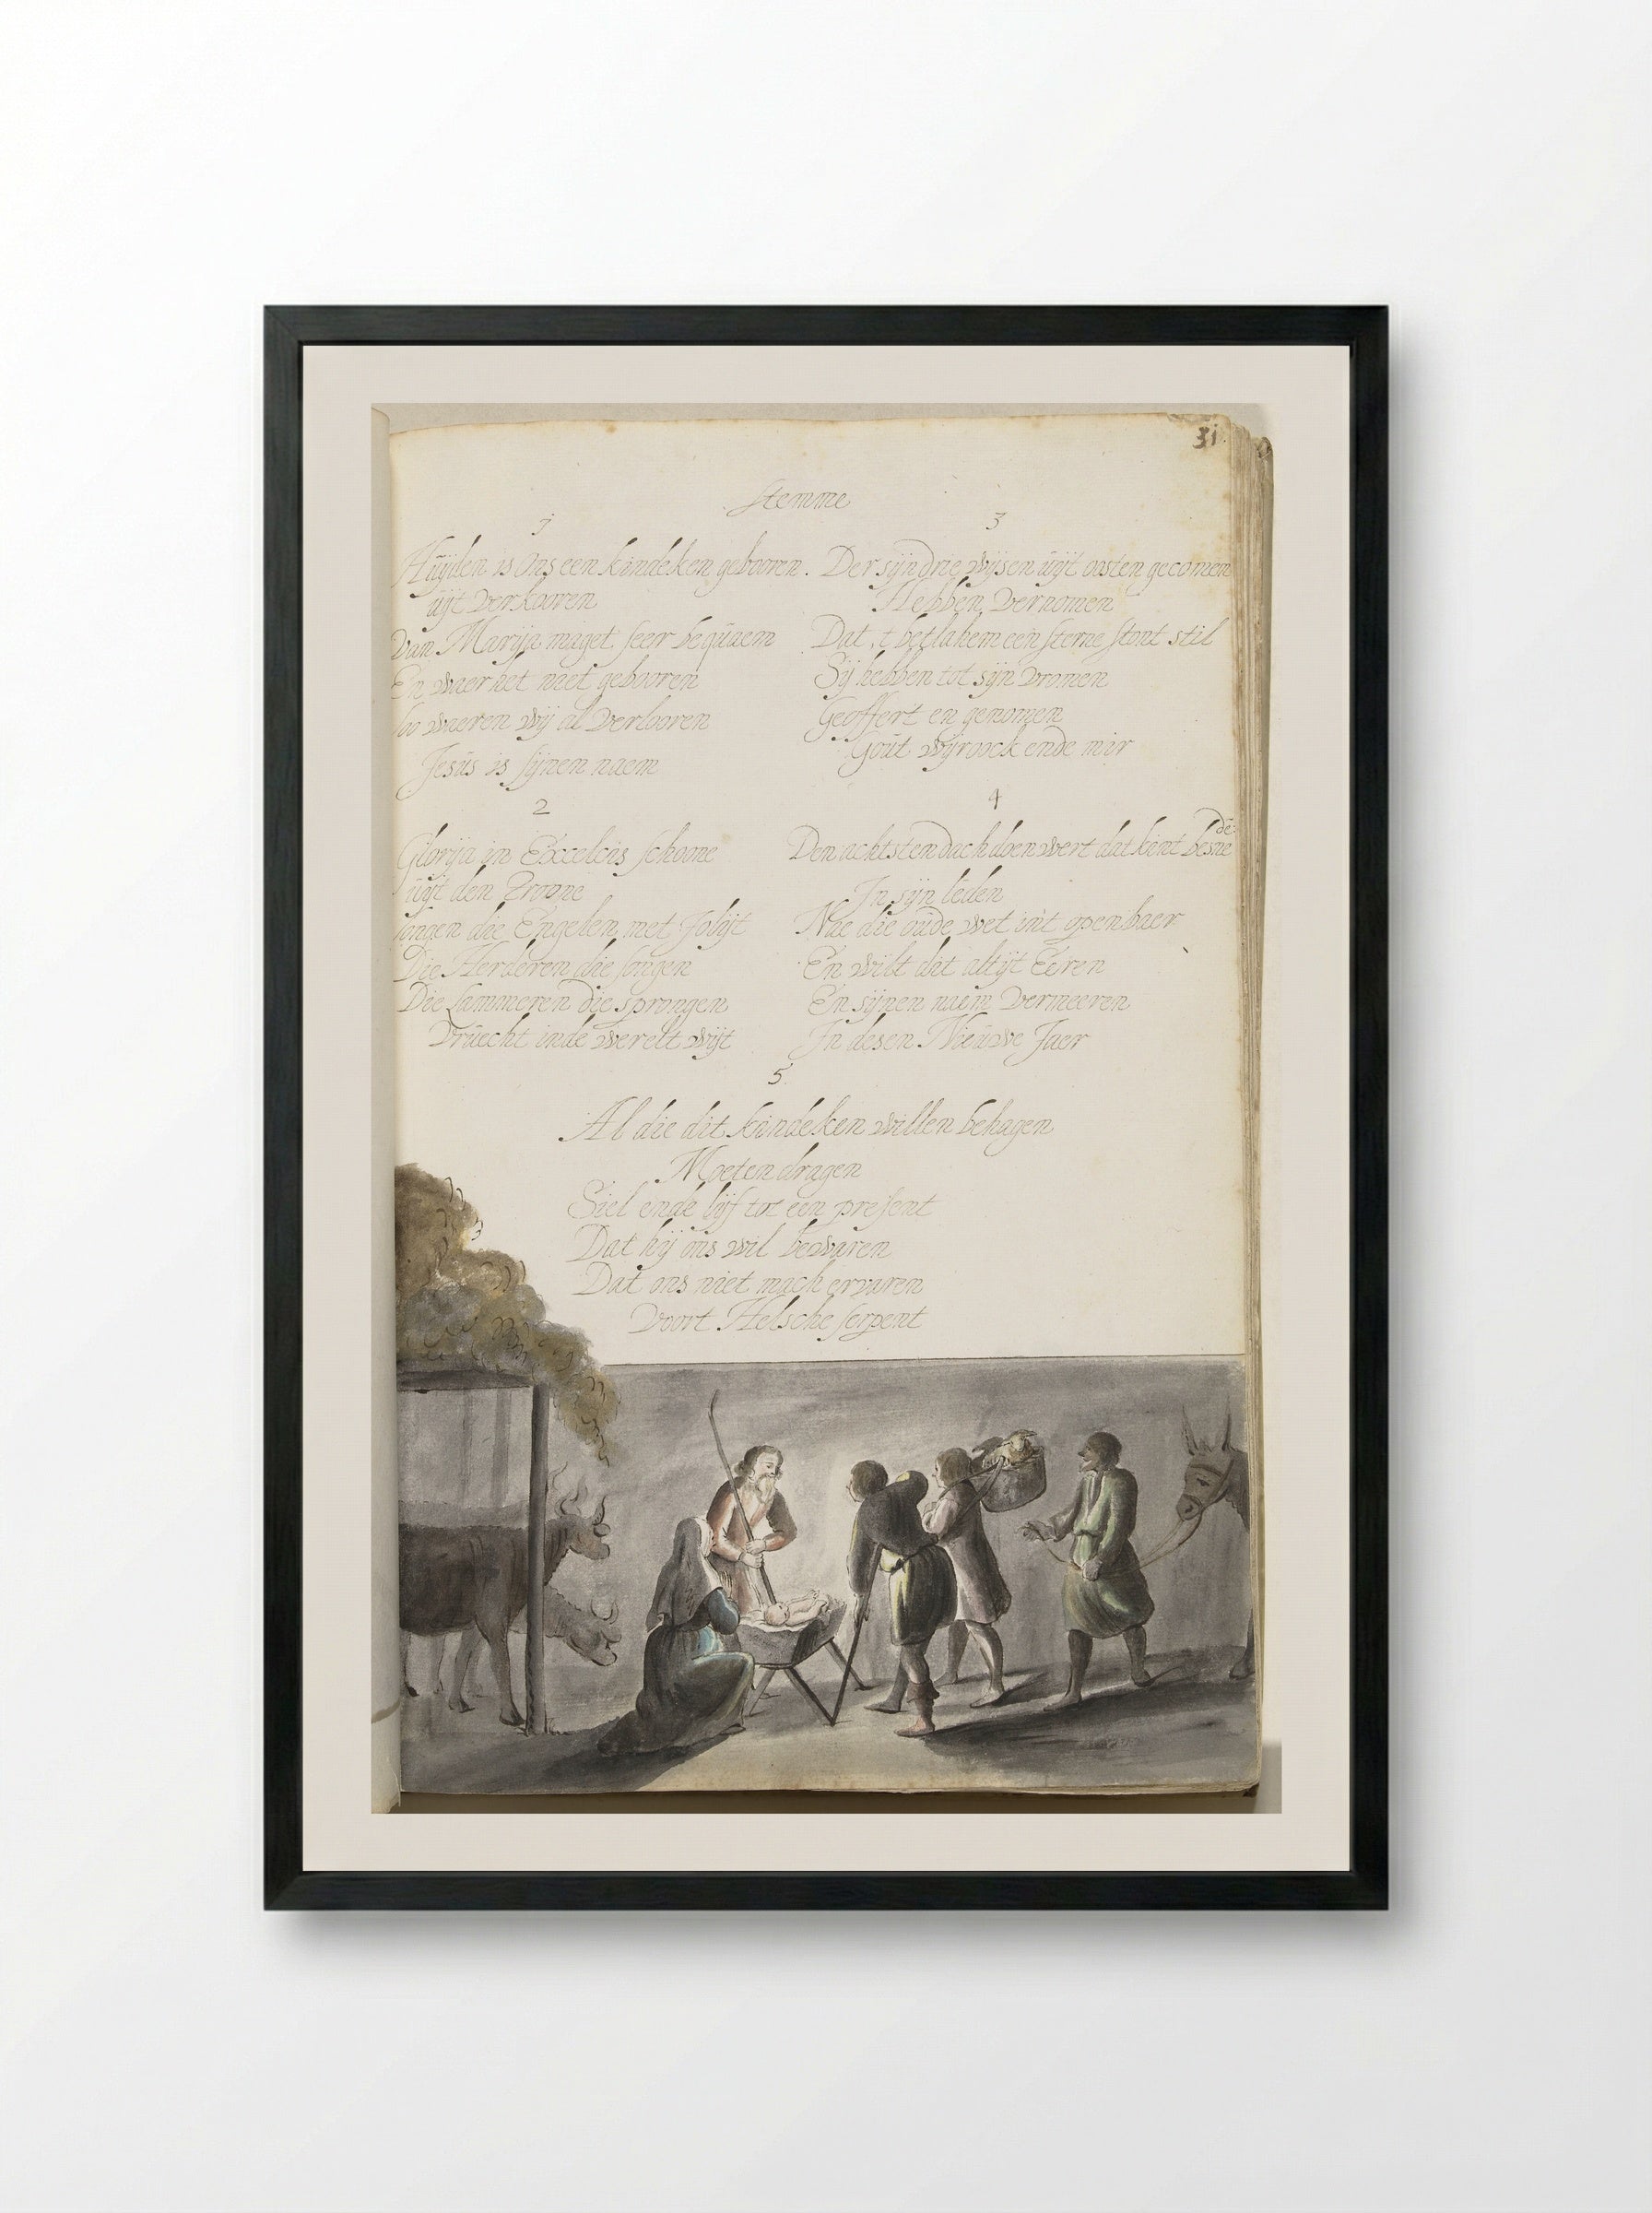 31.
Stemme
1
Huijden is ons een kindeken gebooren.
uijt verkooren
van Marija maget seer bequaem
En waer het niet gebooren
soo waeren wij al verlooren
Jesus is sijnen naem
2
Glorija in Excelcis schoone
uijt den Troone
songen die Engelen met Jolijt
Die Herderen die songen
Die Lammeren die sprongen
Vruecht inde werelt wijt
3
Der sijn drie wijsen uijt oosten gecomen
Hebben vernomen
Dat, t betlahem een sterne stont stil
Sij hebben tot sijn vromen
Geoffert en genomen
Gout wijroock ende mir
4
Den achtsten dach doen wert dat kint besne
de:
In sijn leden
Nae die oude wet int openbaer
En wilt dit altijt Eeren
En sijnen naem vermeeren
In desen Nieuwe Jaer
5
Al die dit kindeken willen behagen
Moeten dragen
Siel ende lijf tot een present
Dat hij ons wil bewaren
Dat ons niet mach ervaren
Voort Helsche serpent